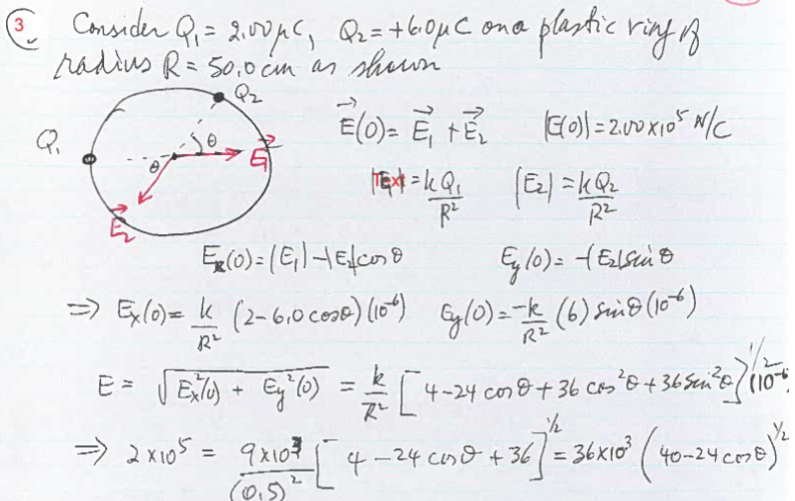 3. Consider Q₁ = 2.00 μC, Q₂ = +6.0 μC on a plastic ring of
radius R = 50.0 cm as shown
Q₂
Q₁ θ θ E⃗₁
E⃗₂
E⃗(0) = E⃗₁ + E⃗₂ |E(0)| = 2.00×10⁵ N/C
Text = kQ₁/R² |E₂| = kQ₂/R²
Eₓ(0) = |E₁| - |E₂| cos θ Ey(0) = -|E₂| sin θ
⇒ Eₓ(0) = k/R² (2 - 6.0 cos θ)(10⁻⁶) Ey(0) = -k/R² (6) sin θ (10⁻⁶)
E = √(Eₓ²(0) + Ey²(0)) = k/R² [4 - 24 cos θ + 36 cos²θ + 36 sin²θ]^1/2 (10⁻⁶
⇒ 2×10⁵ = 9×10³/(0.5)² [4 - 24 cos θ + 36]^1/2 = 36×10³ (40 - 24 cos θ)^1/2